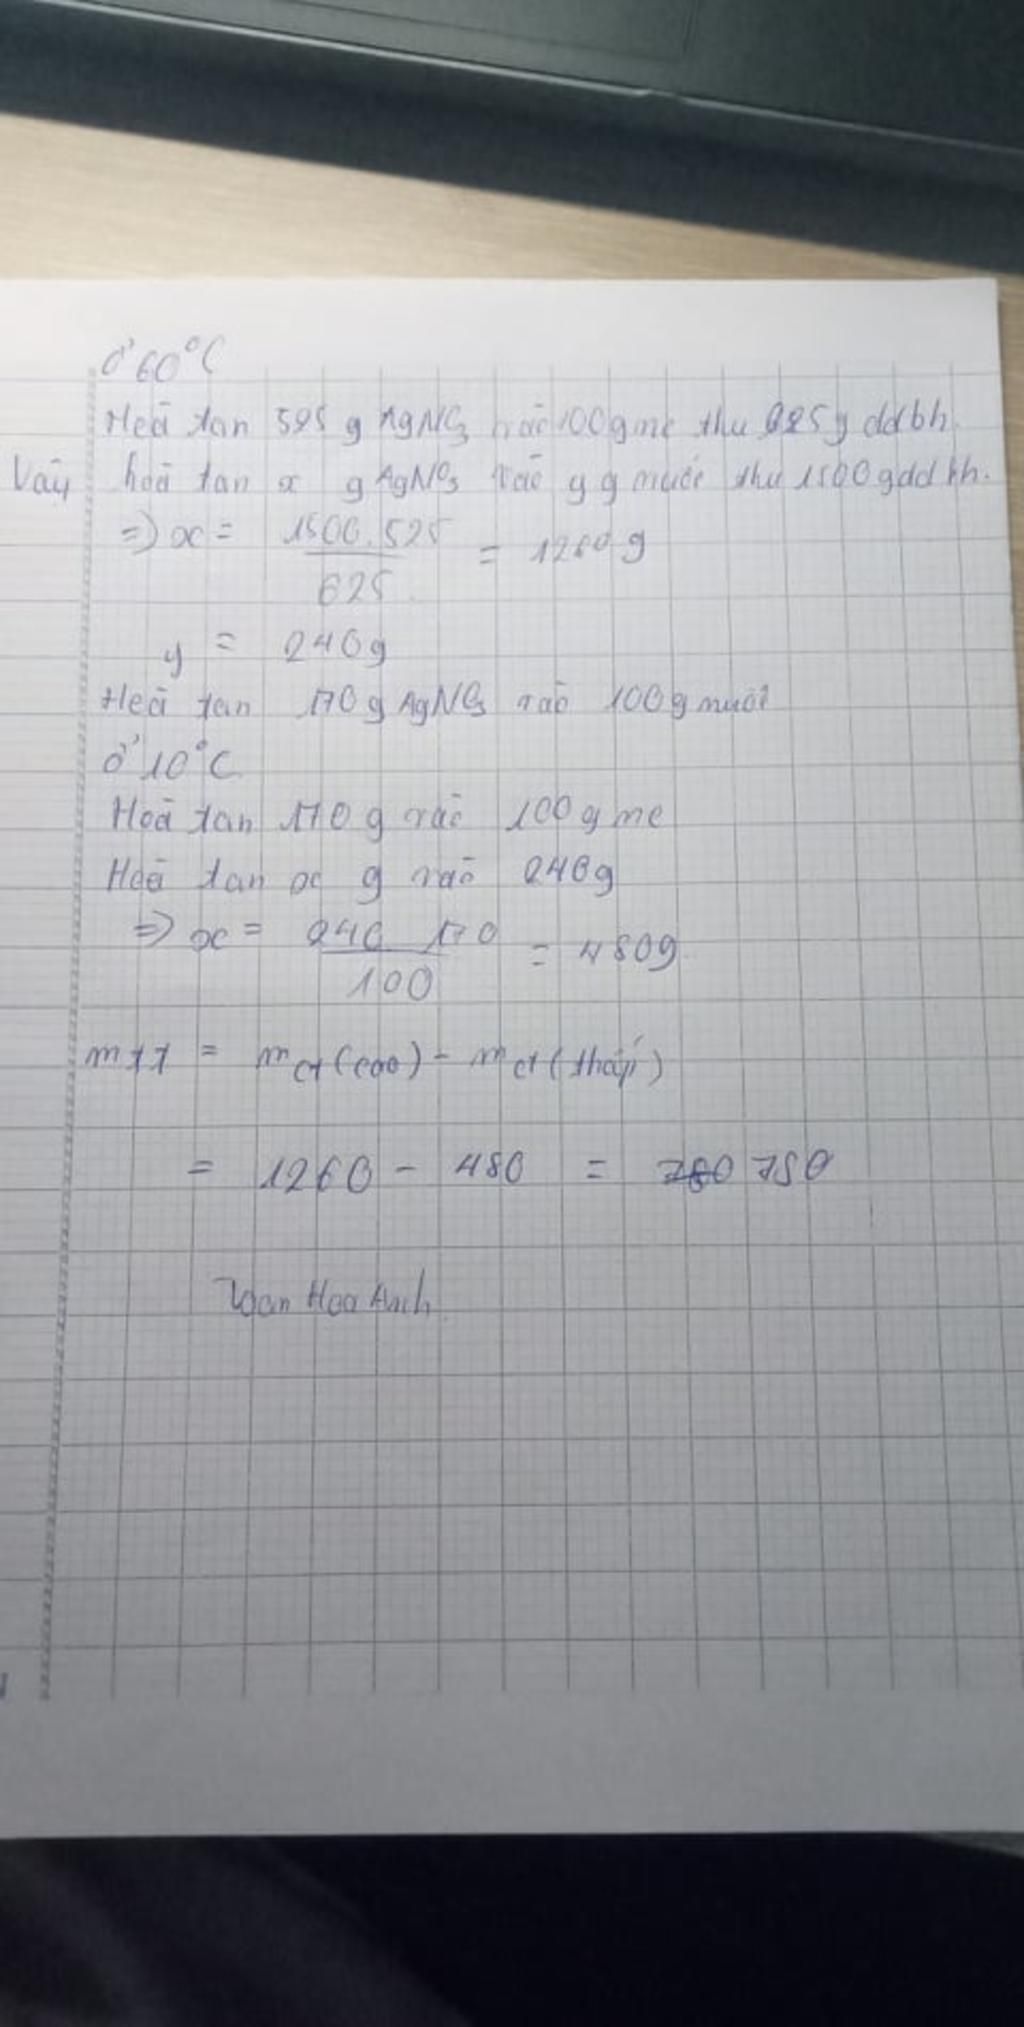 Ở 60°C
Hoà tan 525 g AgNO3 vào 100g nc thu 625g ddbh.
Vậy hoà tan x g AgNO3 vào y g nước thu 1500g ddbh.
=> x = 1500.525 / 625 = 1260 g
y = 240g
Hoà tan 170g AgNO3 vào 100g nước
Ở 10°C
Hoà tan 170 g vào 100g nc
Hoà tan x g vào 240g
=> x = 240 170 / 100 = 480g
mTT = mct (cao) - mct (thấp)
= 1260 - 480 = 780 780
Hoa